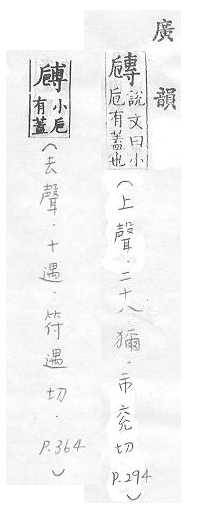 廣韻
𡭐說文曰小
巵有蓋也
（上聲．二十八獼．市兗切 P.294）
小巵
有蓋
（去聲．十遇．符遇切．P.364）